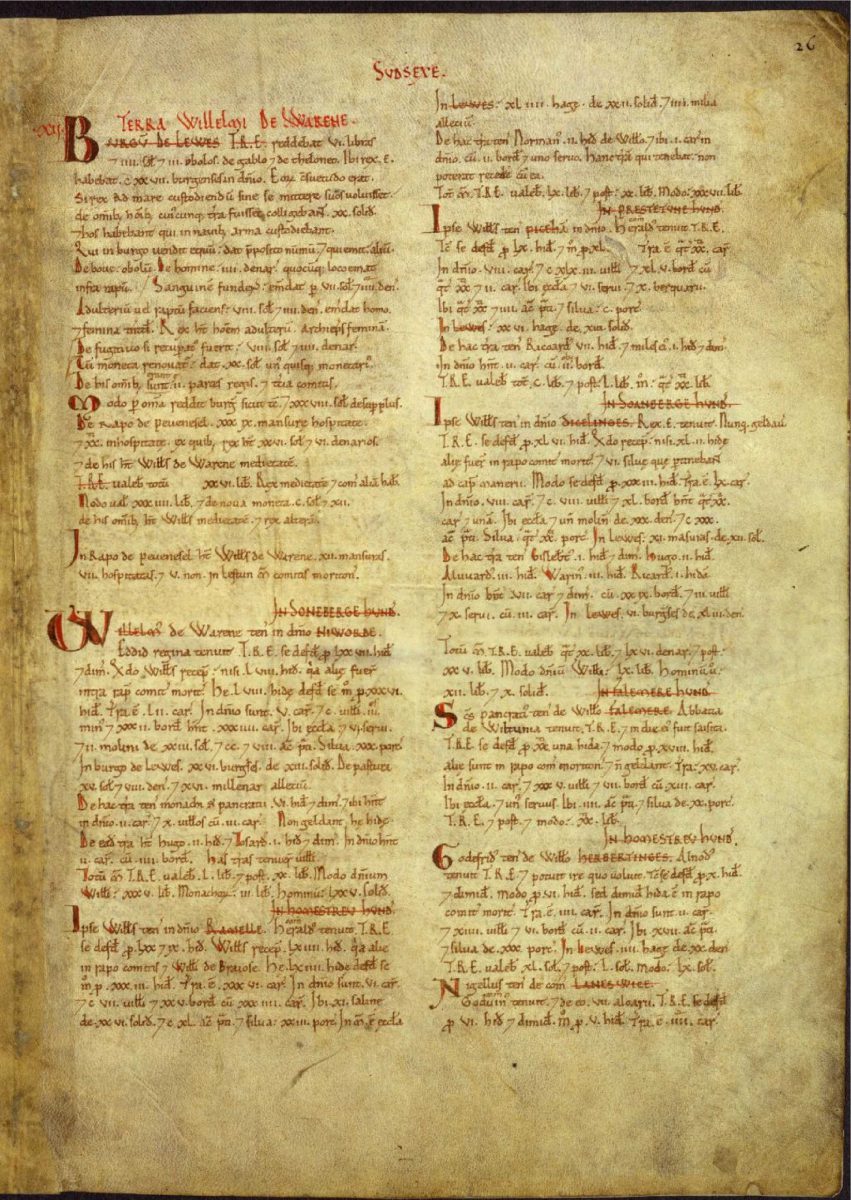 26
SUDSEXE.
XII. TERRA WILLELMI DE WARENE.
BURGU DE LEWES T.R.E. reddebat vi. libras
7 iiii. sol 7 iii. obolos. de gablo 7 de theloneo. Ibi rex. E.
habebat. c xx vii. burgenses in dnio. Eoru csuetudo erat.
Si rex ad mare custodiendu sine se mittere suos voluisset.
de omib hoib cuicunq tra fuisset colligebant. xx. solid.
7 hos habebant qui in navib arma custodiebant.
Qui in burgo vendit equu: dat pposito numu. 7 qui emit: aliu.
De bove: obolu. De homine: iiii. denar. quocuq loco emat
infra rapu. Sanguine fundens: emdat p vii. sol 7 iiii. den.
Adulteriu vel raptu faciens: viii. sol 7 iiii. den. emdat homo.
7 femina tntd. Rex ht hoem adulteru. archieps femina.
De fugitivo si recuperat fuerit: viii. sol 7 iiii. denar.
Cu moneta renovatur: dat xx. sol un quisq monetari.
De his omib erant ii. partes regis. 7 tcia comitis.
Modo p oma reddit burg sicut tc. 7 xxx viii. sol de supplus.
De Rapo de pevenesel. xxx. ix. mansure hospitate.
7 xx. inhospitate. ex quib rex ht xx vi. sol 7 vi. denarios.
7 de his ht Wills de Warene medietate.
T.R.E. valeb totu xx vi. lib. Rex medietate 7 com alia hab.
Modo val xxx iiii. lib. 7 de nova moneta. c. sol 7 xii.
de his omib ht Wills medietate 7 rex altera.
In Rapo de pevenesel ht Wills de Warene. xii. mansuras.
vii. hospitatas. 7 v. non.
IN SONEBERGE HUND.
Willelm de Warene ten in dnio NIWORDE.
Eddid regina tenuit. T.R.E. se defd p lxx vii. hid
7 dim. Qdo Wills recep: nisi l viii. hid. qa alie fuer
intra rap comit morit. He l viii. hide defd se m p xxx vi.
hid. Tra e l ii. car. In dnio sunt. v. car. 7 c. villi. iii.
min. 7 xxx ii. bord hnt xxx iiii. car. Ibi eccla 7 vi servi.
7 ii. molini de xx iii. sol. 7 cc 7 viii. ac pti. Silva. xxx. porc
In burgo de Lewes. xx vi. burgses. de xiii. solid. De pastura
xv. sol 7 viii. den. 7 xvi. millenar alleciu.
De hac tra ten monachi S pancratii vi. hid 7 dim. 7 ibi hnt
in dnio. ii. car. 7 x. villos cu iii. car. Non geldant he hide.
De ead tra ht Hugo. ii. hid. 7 Tosard. i. hid 7 dim. In dnio hnt
ii. car. cu iiii. bord. Has tras tenuer villi.
Totu M T.R.E. valeb. l. lib. 7 post: xx. lib. Modo dnium
Willi: xxx v. lib. Monachoru: iii. lib. Hominu: lxx v. solid.
IN HOMESTREU HUND.
Ipse Wills ten in dnio RAMELLE. Herald com tenuit. T.R.E.
se defd p lxx 7 ix. hid. Wills recep. lx iiii. hid. qa alie
in rapo comitis 7 Willi de Braiose. He lx iiii hide defd se
m p xxx iii. hid. Tra e xxx vi. car. In dnio sunt. vi. car.
7 c viii. villi 7 xx v. bord cu xxx iiii. car. Ibi xi. saline
de xx vi. solid. 7 c xl. ac pti. 7 silva: xx iii. porc. In M e eccla
In Lewes: xl iiii. hage. de xx ii. solid. 7 iiii. milia
alleciu.
De hac tra ten Norman. ii. hid de Willo. 7 ibi. i. car in
dnio. cu ii. bord 7 uno servo. Hanc tra qui tenebat: non
poterat recede cu ea.
Tot M T.R.E. valeb lx. lib. 7 post: xx. lib. Modo: xxx vii. lib.
IN PRESTETUNE HUND.
Ipse Wills ten PICEHA in dnio. Herald com tenuit T.R.E.
Tc se defd p lx. hid. m p xl. Tra e qt xx. car.
In dnio. viii. car. 7 c xlx iii. villi 7 xl v. bord cu
qt xx 7 ii. car. Ibi eccla 7 vi. servi. 7 x. berquarii.
Ibi qt xx 7 iiii. ac pti. 7 silva: c. porc.
In Lewes: xx vi. hage. de xiii. solid.
De hac tra ten Ricoard vii. hid. 7 miles ei. i. hid 7 dim.
In dnio hnt ii. car. cu ii. bord.
T.R.E. valeb tot c. lib. 7 post: l. lib. M: qt xx. lib.
IN SOANBERGE HUND.
Ipse Wills ten in dnio DICELINGES. Rex. E. tenuit. Nunq geldau
T.R.E. se defd p xl vi. hid. Qdo recep: nisi. xl. ii. hide
alie fuer in rapo comit morit 7 vi. silve que ptinebant
ad cap manerii. Modo se defd p xxx iii. hid. Tra e lx. car.
In dnio. viii. car. 7 c viii. villi 7 xl. bord hnt qt xx.
car 7 una. Ibi eccla. 7 un molin de. xxx. den. 7 c xxx.
ac pti. Silva: qt xx. porc. In Lewes. xi. masuras. de xii. sol.
De hac tra ten Gislebt. i. hid 7 dim. Hugo. ii. hid.
Aluuard. iii. hid. Warin. iii. hid. Ricard. i. hida.
In dnio hnt vii. car 7 dimid. cu xx ix. bord. 7 iii. villi
7 x. servi cu. iii. car. In Lewes. vi. burgses de xl iii. den.
Totu M T.R.E. valeb qt xx. lib. 7 lx vi. denar. 7 post:
xx v. lib. Modo dniu Willi: lx. lib. Hominu v:
xii. lib. 7 x. solid.
IN FALEMERE HUND
Scs pancrati ten de Willo FALEMERE. Abbatia
de Wiltunia tenuit. T.R.E. 7 in die ei fuit saisita.
T.R.E. se defd p xx una hida. 7 modo p xviii. hid.
alie sunt in rapo com moriton. 7 n geldant. Tra: xv. car.
In dnio. ii. car. 7 xxx v. villi 7 vii. bord cu xiii. car.
Ibi eccla 7 un servus. Ibi iiii. ac pti. 7 silva de xx. porc.
T.R.E. 7 post. 7 modo: xx. lib.
IN HOMESTREU HUND.
Godefrid ten de Willo HERBERTINGES. Alnod
tenuit T.R.E. 7 potuit ire quo voluit. Tc se defd p x. hid
7 dimid. modo p vi. hid. sed dimid hida e in rapo
comit morit. Tra e iiii. car. In dnio sunt. ii. car.
7 xiiii. villi 7 vi. bord cu ii. car. Ibi xvii. ac pti.
7 silva de xxx. porc. In Lewes. iii. hage de xx. den
T.R.E. valeb xl. sol. 7 post: l. sol. modo: lx. sol.
Nigellus ten de com LANESWICE.
Goduin tenuit. 7 de eo. vii. aloarii. T.R.E. se defd
p vi. hid 7 dimid. m p v. hid. Tra e. iiii. car.